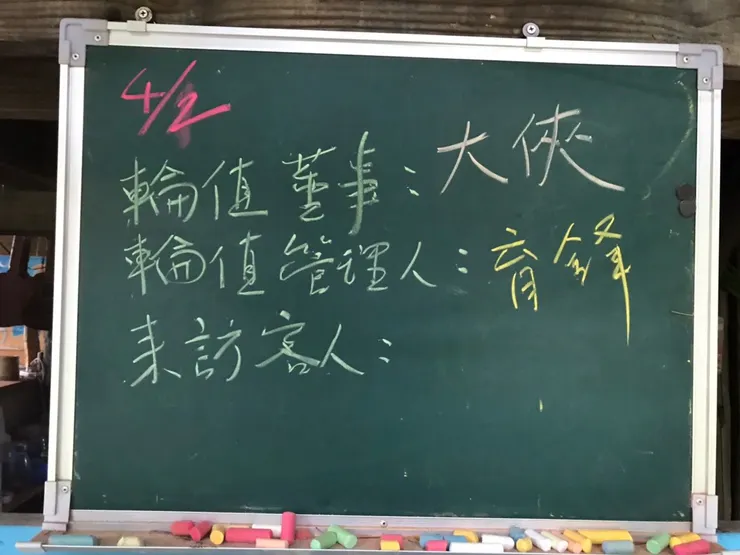 4/2
輪值董事：大俠
輪值管理人：育鋒
来訪客人：